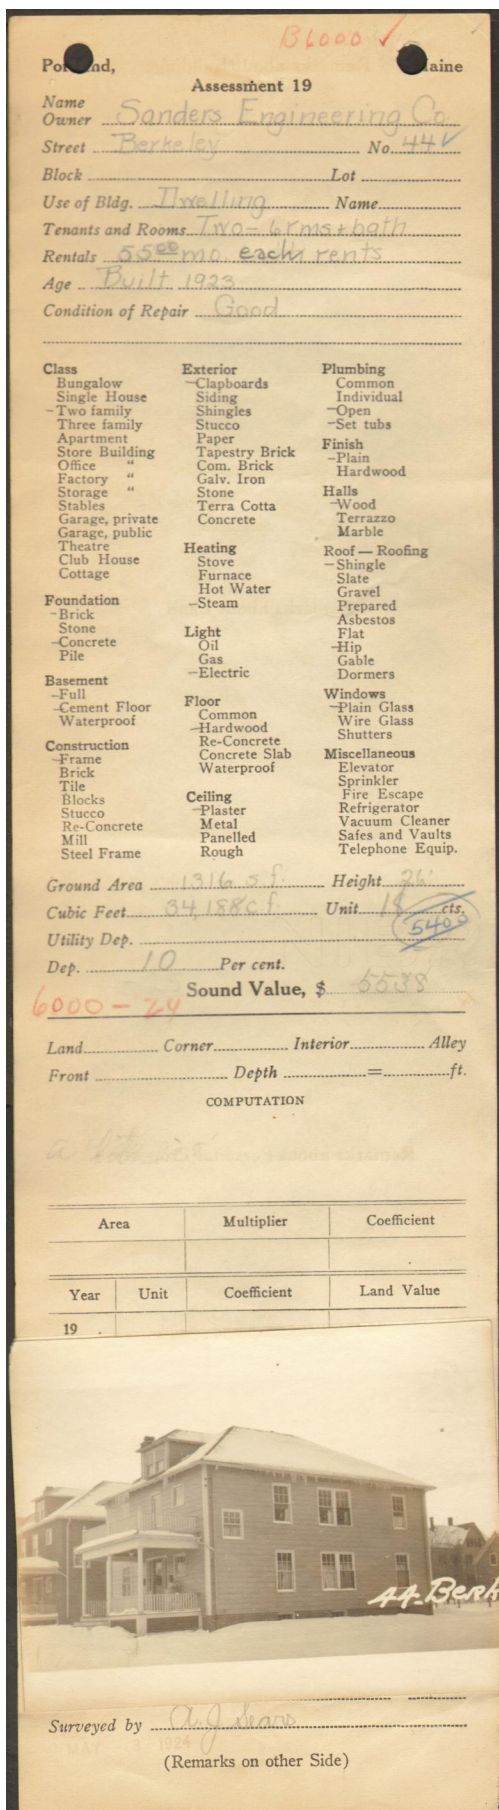 B6000 ✓
Portland, Maine
Assessment 19
Name
Owner Sanders Engineering Co.
Street Berkeley No. 44 ✓
Block Lot
Use of Bldg. Dwelling Name
Tenants and Rooms Two - 6 rms + bath
Rentals 55.00 mo. each rents
Age Built 1923
Condition of Repair Good
Class
Bungalow
Single House
- Two family
Three family
Apartment
Store Building
Office "
Factory "
Storage "
Stables
Garage, private
Garage, public
Theatre
Club House
Cottage
Foundation
- Brick
Stone
- Concrete
Pile
Basement
- Full
- Cement Floor
Waterproof
Construction
- Frame
Brick
Tile
Blocks
Stucco
Re-Concrete
Mill
Steel Frame
Exterior
- Clapboards
Siding
Shingles
Stucco
Paper
Tapestry Brick
Com. Brick
Galv. Iron
Stone
Terra Cotta
Concrete
Heating
Stove
Furnace
Hot Water
- Steam
Light
Oil
Gas
- Electric
Floor
Common
- Hardwood
Re-Concrete
Concrete Slab
Waterproof
Ceiling
- Plaster
Metal
Panelled
Rough
Plumbing
Common
Individual
- Open
- Set tubs
Finish
- Plain
Hardwood
Halls
- Wood
Terrazzo
Marble
Roof — Roofing
- Shingle
Slate
Gravel
Prepared
Asbestos
Flat
- Hip
Gable
Dormers
Windows
- Plain Glass
Wire Glass
Shutters
Miscellaneous
Elevator
Sprinkler
Fire Escape
Refrigerator
Vacuum Cleaner
Safes and Vaults
Telephone Equip.
Ground Area 1316 s.f. Height 26'
Cubic Feet 34,188 c.f. Unit 18 cts.
5400
Utility Dep.
Dep. 10 Per cent.
Sound Value, $ 5538
6000 - 24
Land Corner Interior Alley
Front Depth = ft.
COMPUTATION
Area Multiplier Coefficient
Year Unit Coefficient Land Value
19
44-Berk
Surveyed by A. J. Sears
MAY 1924
(Remarks on other Side)